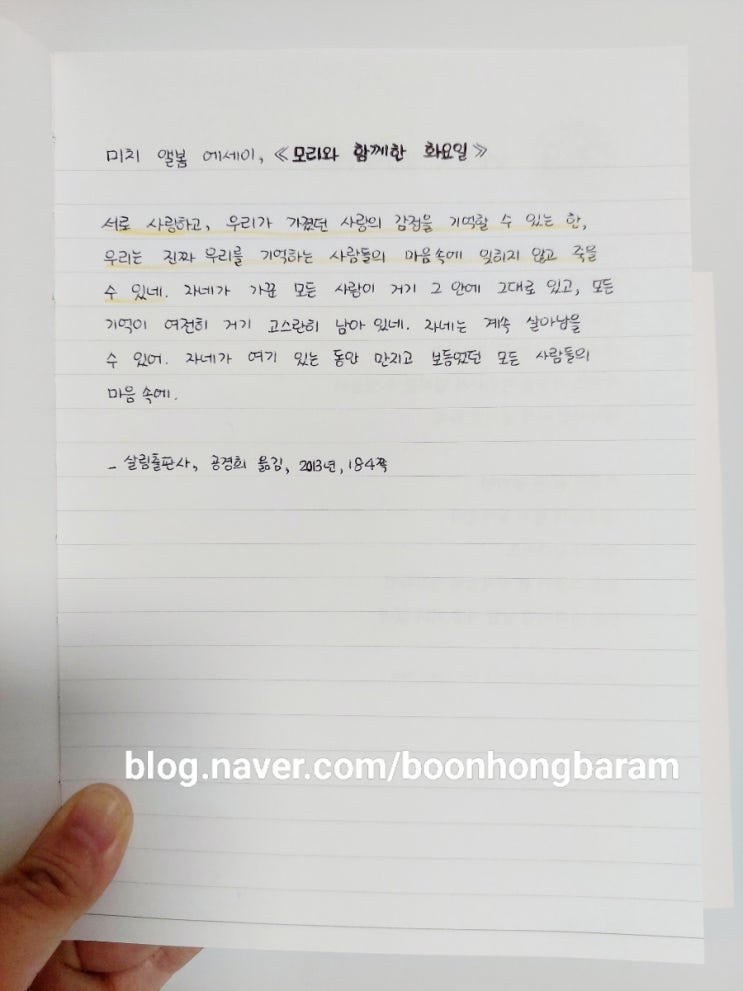 미치 앨봄 에세이, 《모리와 함께한 화요일》
서로 사랑하고, 우리가 가졌던 사랑의 감정을 기억할 수 있는 한,
우리는 진짜 우리를 기억하는 사람들의 마음속에 잊히지 않고 죽을
수 있네. 자네가 가꾼 모든 사람이 거기 그 안에 그대로 있고, 모든
기억이 여전히 거기 고스란히 남아 있네. 자네는 계속 살아남을
수 있어. 자네가 여기 있는 동안 만지고 보듬었던 모든 사람들의
마음 속에.
- 살림출판사, 공경희 옮김, 2013년, 184쪽
blog.naver.com/boonhongbaram